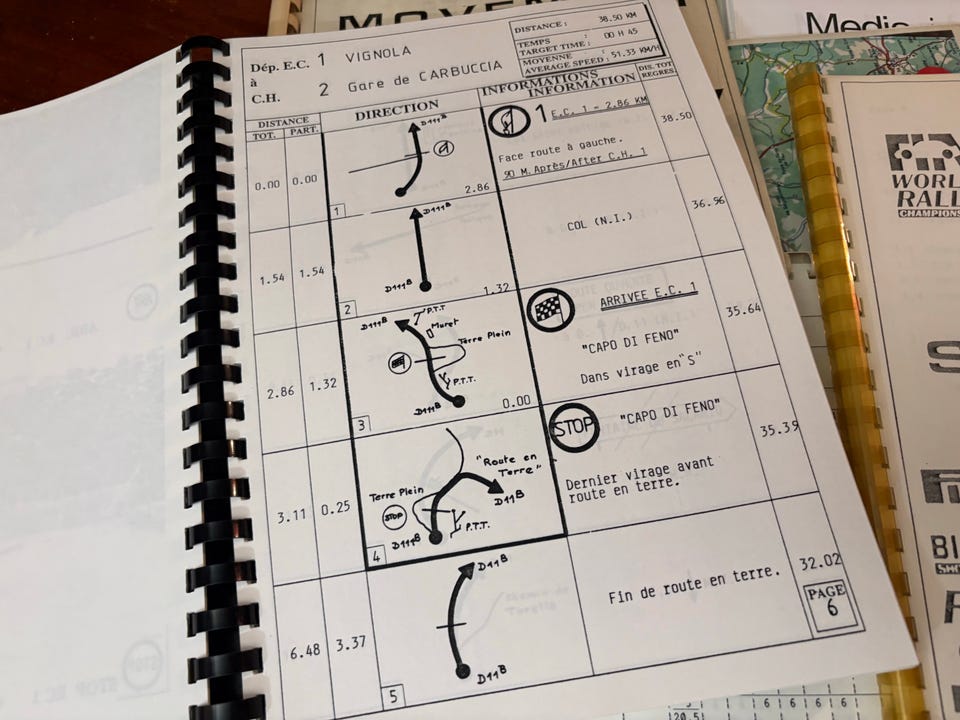 MOVEMENT
Media
Dép. E.C. 1 VIGNOLA
à
C.H. 2 Gare de CARBUCCIA
DISTANCE : 38.50 KM
TEMPS
TARGET TIME : 00 H 45
MOYENNE
AVERAGE SPEED : 51.33 KM/H
DISTANCE
TOT. PART.
DIRECTION
INFORMATIONS
INFORMATION
DIS. TOT
REGRES.
0.00 0.00
D111B
2.86
1
1 E.C. 1 - 2.86 KM
Face route à gauche.
90 M. Après/After C.H. 1
38.50
1.54 1.54
D111B
D111B
1.32
2
COL (N.I.)
36.96
2.86 1.32
P.T.T.
D111B
Muret
Terre Plein
P.T.T.
D111B
0.00
3
ARRIVEE E.C. 1
"CAPO DI FENO"
Dans virage en "S"
35.64
3.11 0.25
"Route en
Terre"
Terre Plein
STOP
D11B
P.T.T.
D111B
4
STOP
"CAPO DI FENO"
Dernier virage avant
route en terre.
35.39
6.48 3.37
D11B
D11B
5
Fin de route en terre.
32.02
PAGE
6
WORL
RALL
CHAMPIONS
STOP EC1
6 6 6 6
20.5